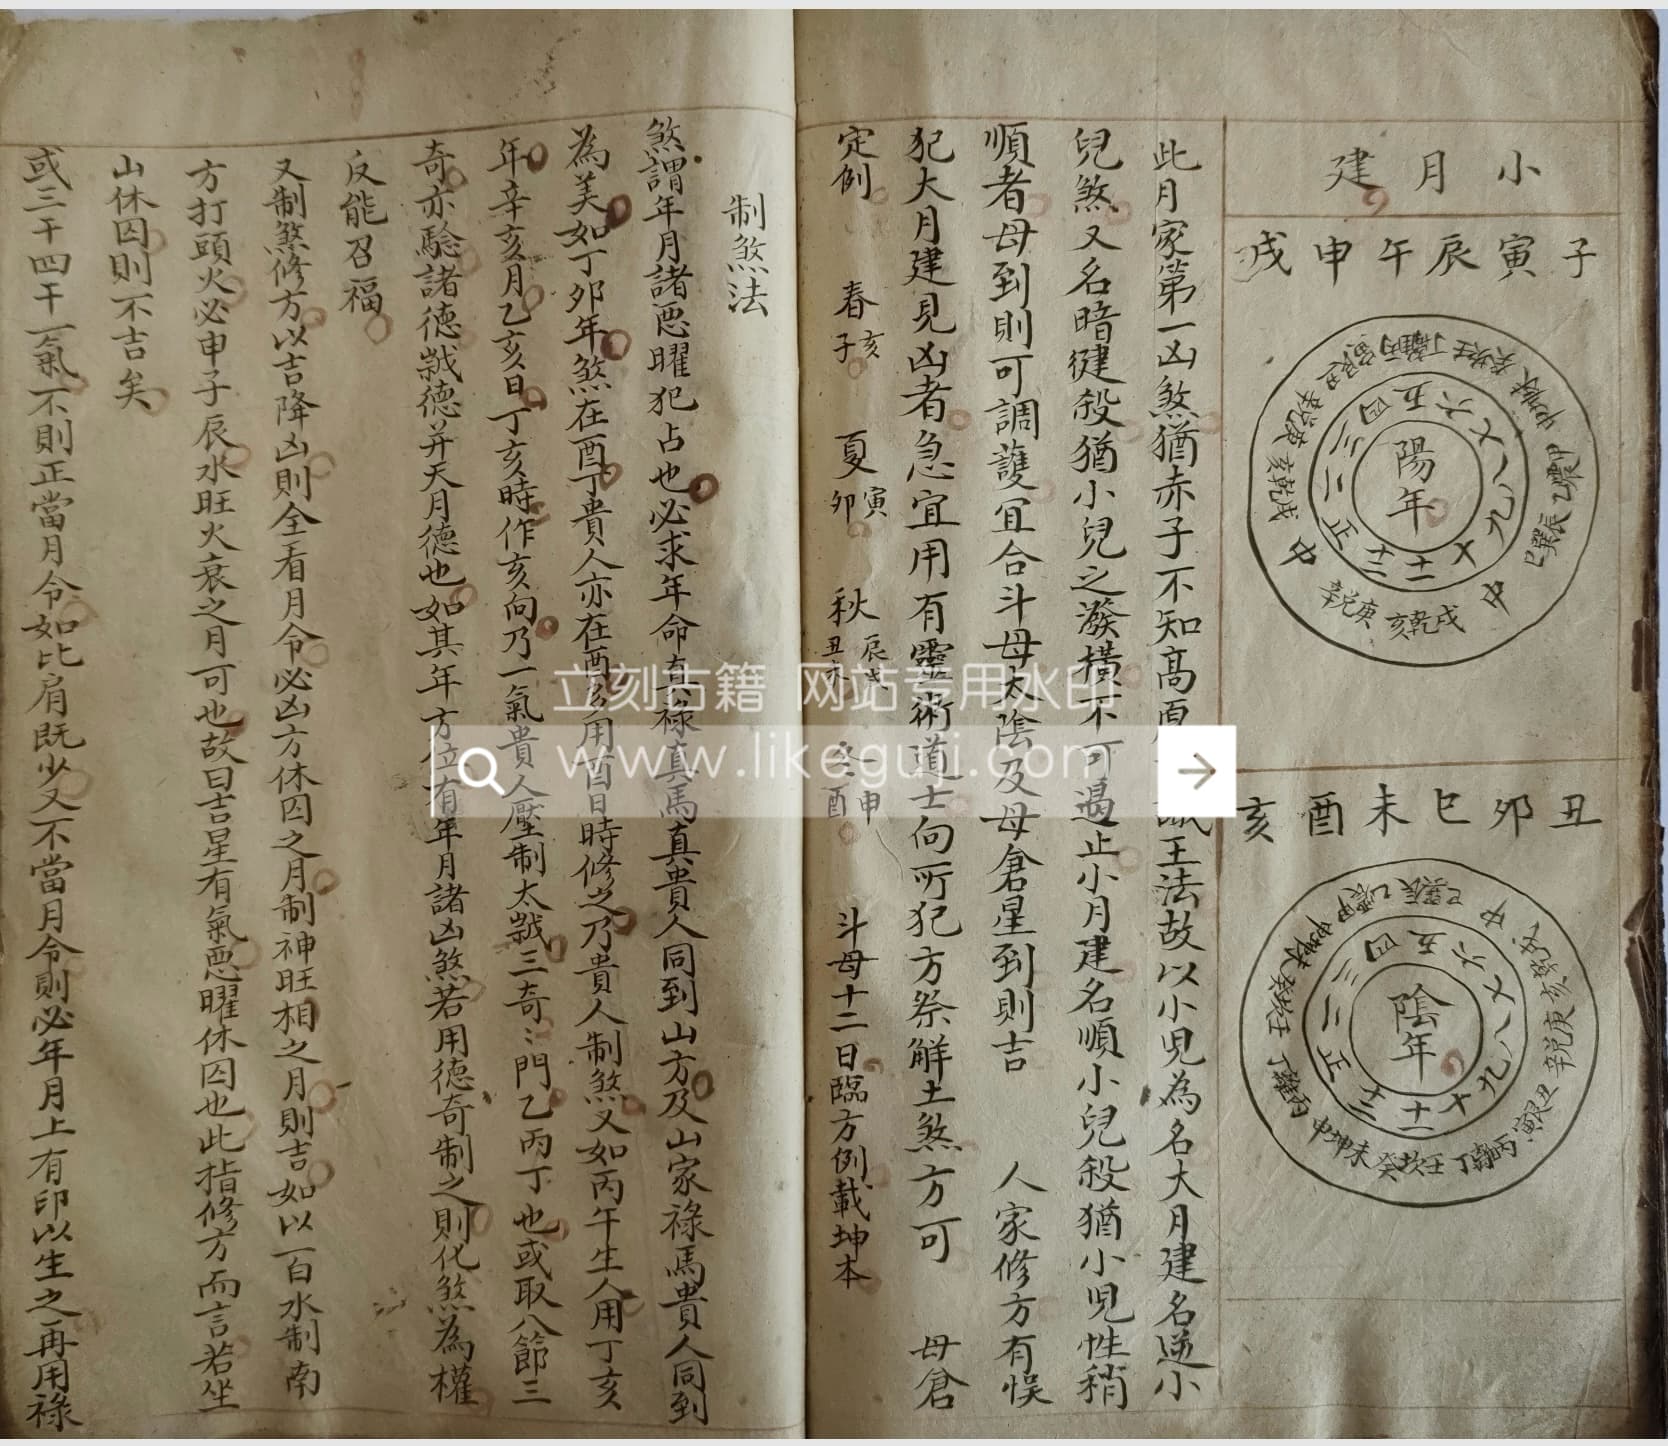 小月建
子寅辰午申戌
陽年
正二三四五六七八九十十一十二
丑卯巳未酉亥
陰年
正二三四五六七八九十十一十二
此月家第一凶煞猶赤子不知高王法故以小児為名大月建名逆小
兒煞又名暗建殺猶小兒之潑橫不可遏止小月建名順小兒殺猶小児性稍
順者母到則可調護宜合斗母太陰及母倉星到則吉 人家修方有悮
犯大月建見凶者急宜用有靈術道士向所犯方祭解土煞方可 母倉
定例 春亥子 夏寅卯 秋辰戌丑未 冬申酉 斗母十二日臨方例載坤本
制煞法
煞謂年月諸惡曜犯占也必求年命真祿真馬真貴人同到山方及山家祿馬貴人同到
為美如丁卯年煞在酉丁貴人亦在酉多用酉日時修之乃貴人制煞又如丙午生人用丁亥
年辛亥月乙亥日丁亥時作亥向乃一氣貴人壓制太歲三奇:門乙丙丁也或取八節三
奇亦驗諸德歲德并天月德也如其年方位有年月諸凶煞若用德奇制之則化煞為權
反能召福
又制煞修方以吉降凶則全看月令必凶方休囚之月制神旺相之月則吉如以一白水制南
方打頭火必申子辰水旺火衰之月可也故曰吉星有氣惡曜休囚也此指修方而言若坐
山休囚則不吉矣
或三干四干一氣不則正當月令如比肩既少又不當月令則必年月上有印以生之再用祿
立刻古籍 网站专用水印
www.likeguji.com